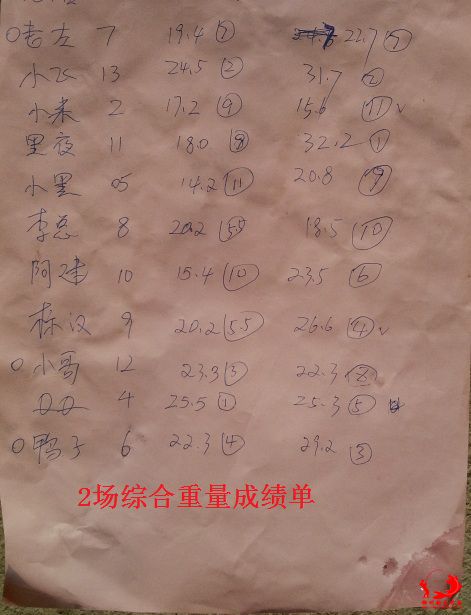 老左 7 19.4 ⑦ 22.7 ⑦
小飞 13 24.5 ② 31.7 ②
小来 2 17.2 ⑨ 15.6 ⑪ √
黑夜 11 18.0 ⑧ 32.2 ①
小黑 05 14.2 ⑪ 20.8 ⑨
李总 8 20.2 (5.5) 18.5 ⑩
阿建 10 15.4 ⑩ 23.5 ⑥
栋汉 9 20.2 (5.5) 26.6 ④ √
小哥 12 23.3 ③ 22.3 ⑧
4 25.5 ① 25.3 ⑤
鸭子 6 22.3 ④ 29.2 ③
2场综合重量成绩单